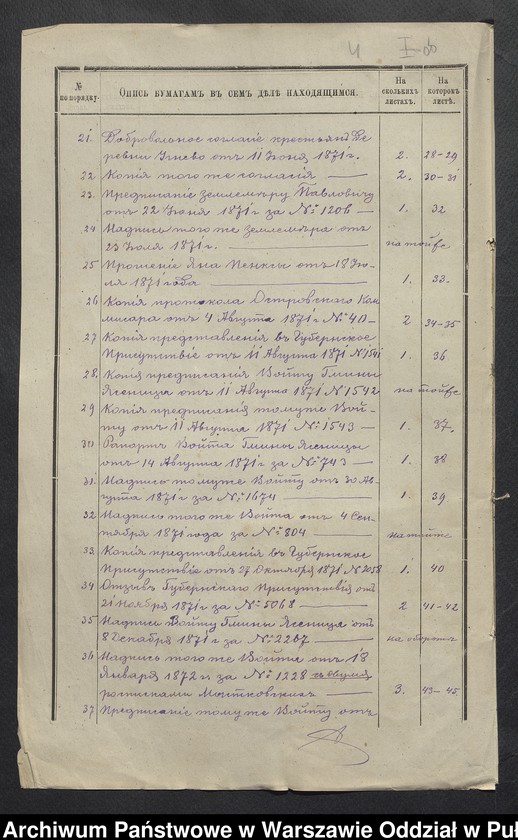 4
№ по порядку.
Опись бумагамъ въ семъ дѣлѣ находящимся.
На сколькихъ листахъ.
На которомъ листѣ.
21. Добровольное согласіе крестьянъ Де
ревни от 11 Іюня 1871 г. 2. 28-29
22 Копія того же согласія 2. 30-31
23. Предписаніе землемѣру Павловичу
отъ 22 Іюня 1871 г за № 1206 1. 32
24 Надпись того же землемѣра отъ
23 Іюля 1871 г.
25 Прошеніе Яна Пенксы отъ 18 Ію-
ля 1871 года 1. 33.
26 Копія протокола Островского Ком
мисара отъ 4 Августа 1871 г № 40 2 34-35
27 Копія представленія въ Губернское
Присутствіе отъ 11 Августа 1871 № 1541 1. 36
28. Копія предписанія Войту Гмины
Ясеница отъ 11 Августа 1871 № 1542
29 Копія предписанія тому же Вой-
ту отъ 11 Августа 1871 № 1543 1. 37.
30 Рапортъ Войта Гмины Ясеницы
отъ 14 Августа 1871 г за № 743 1. 38
31. Надпись тому же Войту отъ 30 Ав-
густа 1871 г за № 1674 1. 39
32 Надпись того же Войта отъ 4 Сен-
тября 1871 года за № 804
33. Копія представленія въ Губернское
Присутствіе отъ 27 Октября 1871 № 2058 1. 40
34 Отзывъ Губернскаго Присутствія отъ
21 Ноября 1871 г за № 5068 2 41-42
35 Надпись Войту Гмины Ясеница отъ
8 Декабря 1871 г за № 2267 на оборотѣ
36 Надпись того же Войта отъ 18
Января 1872 г за № 1228 съ двумя
росписками 3. 43-45
37 Предписаніе тому же Войту отъ
Archiwum Państwowe w Warszawie Oddział w Puł